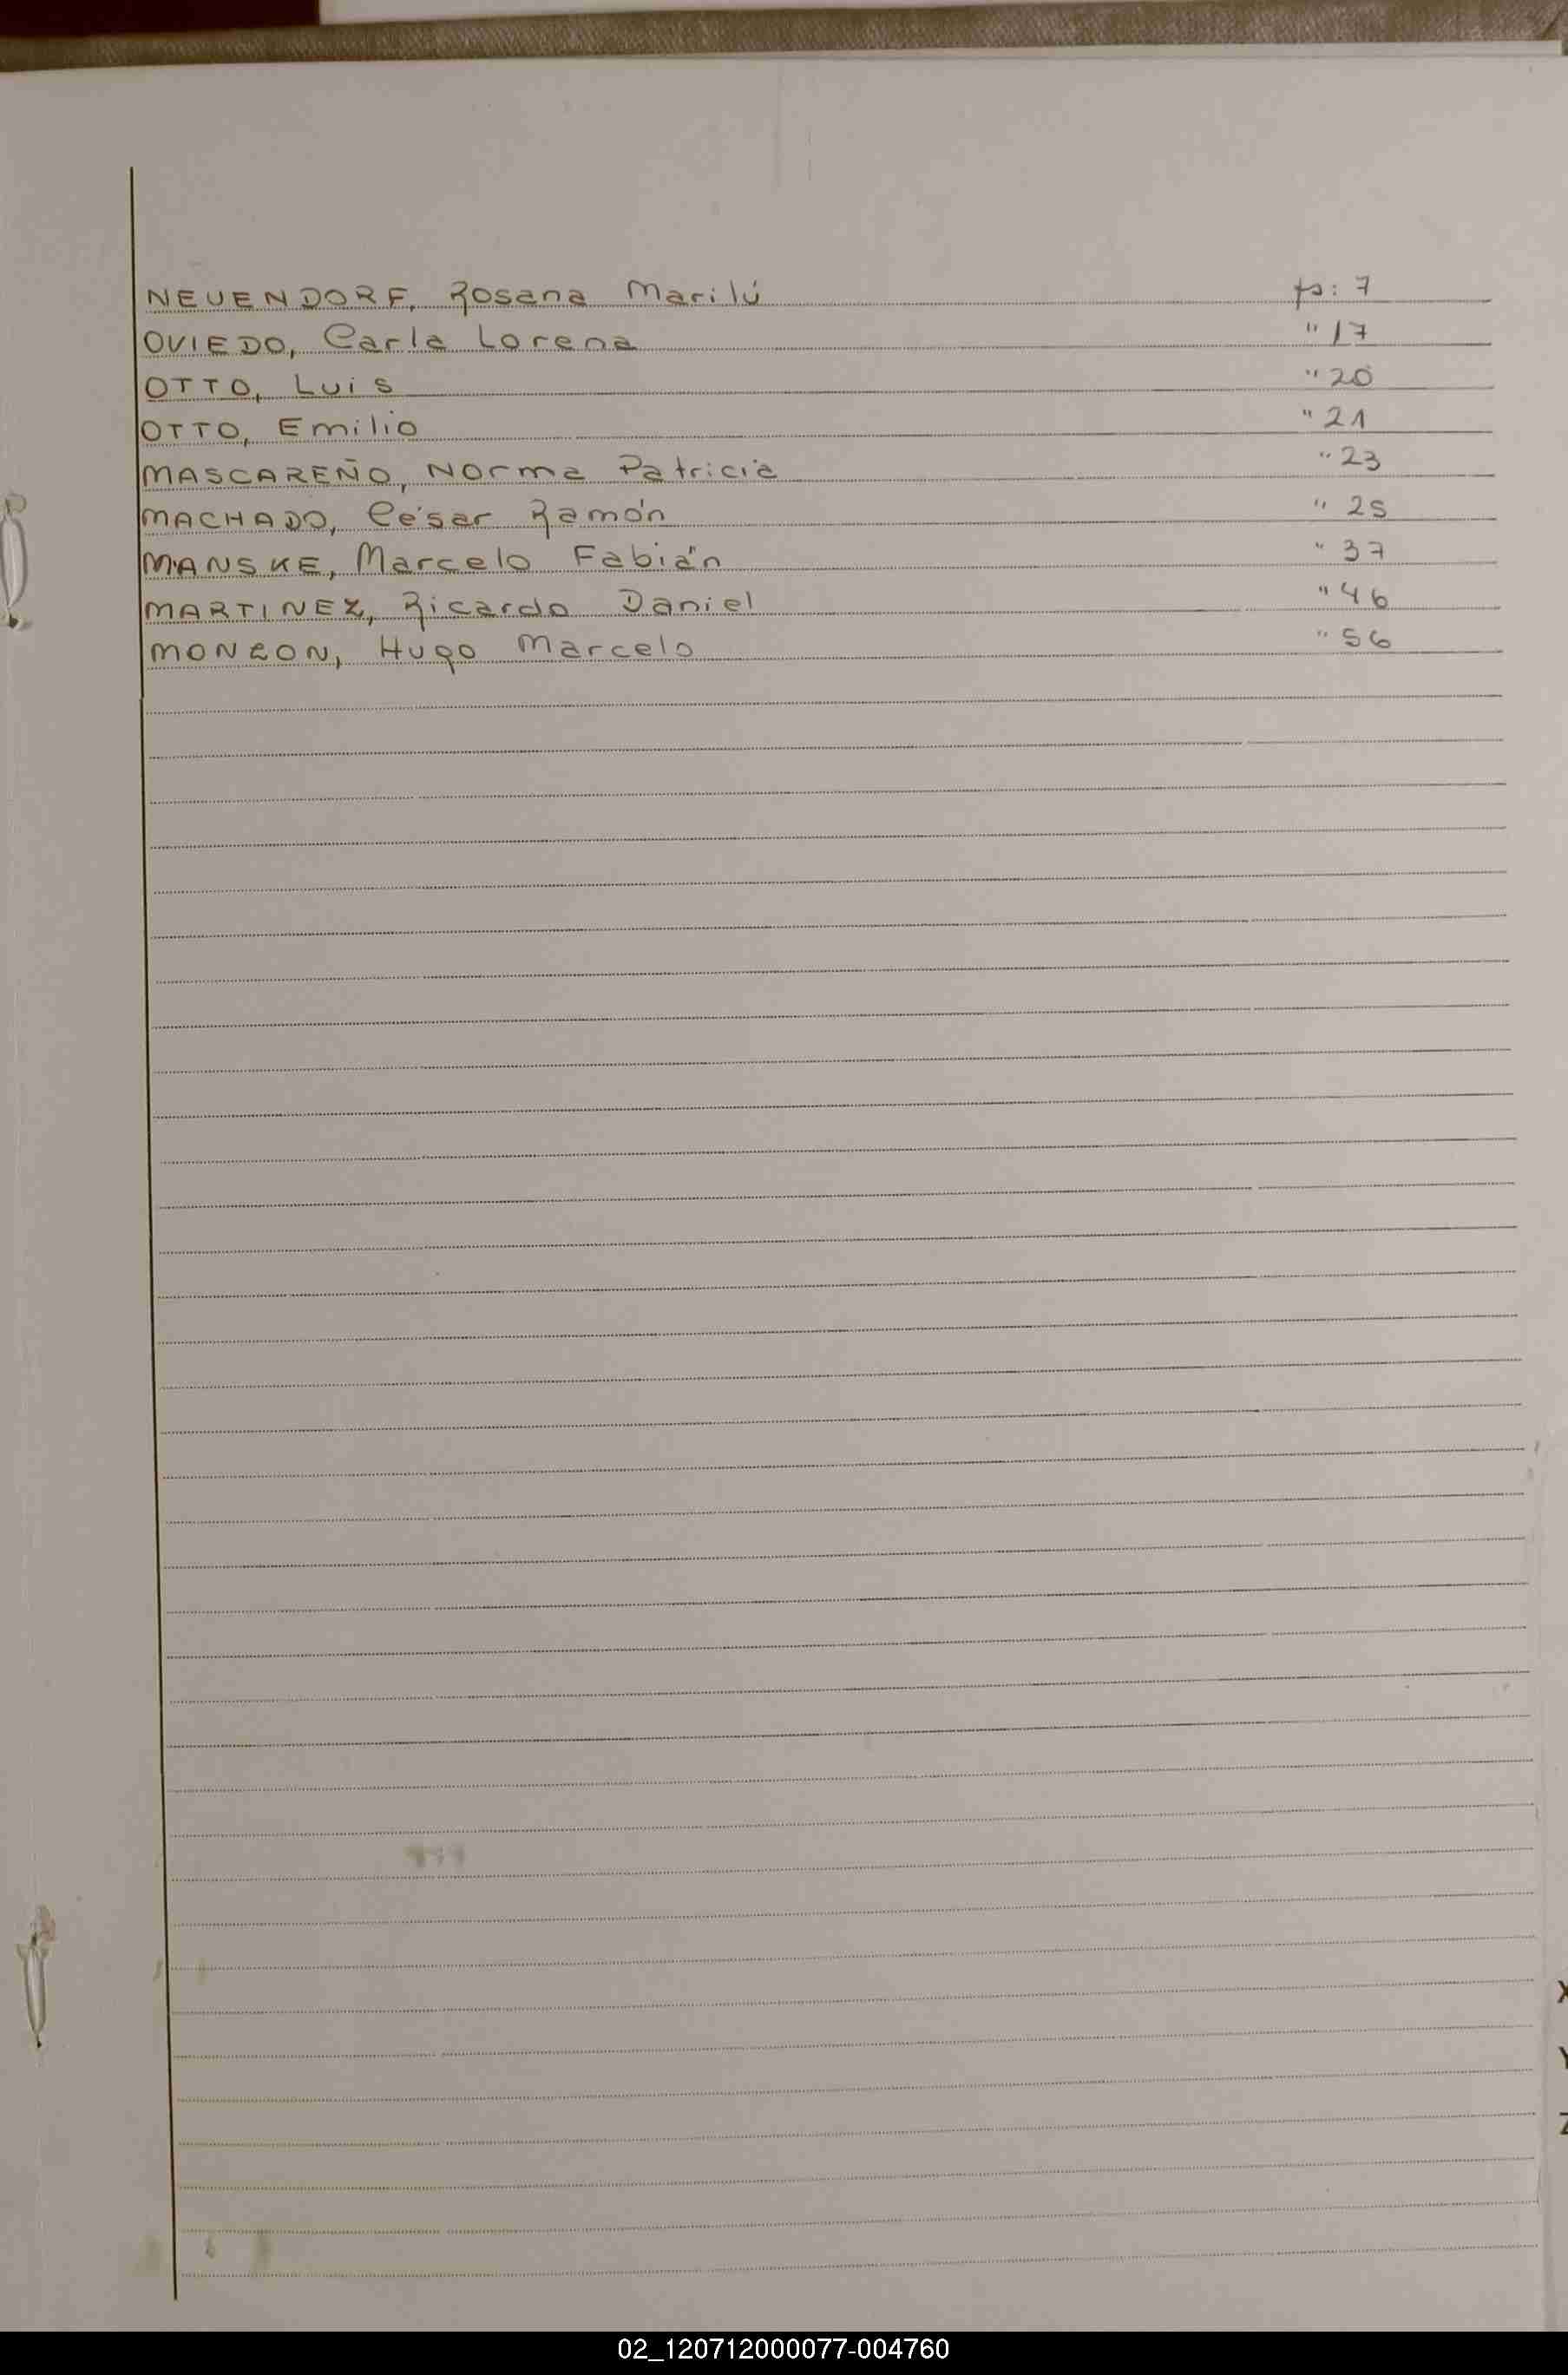 NEUENDORF, Rosana Marilú fs: 7
OVIEDO, Carla Lorena " 17
OTTO, Luis " 20
OTTO, Emilio " 21
MASCAREÑO, Norma Patricia " 23
MACHADO, César Ramón " 25
MANSKE, Marcelo Fabián " 37
MARTINEZ, Ricardo Daniel " 46
MONZON, Hugo Marcelo " 56
X
Y
Z
02_120712000077-004760